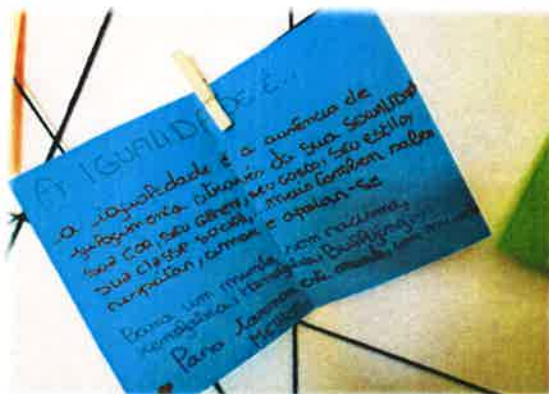 A IGUALIDADE É...
a igualidade é a ausência de
julgamento através da sua sexualidade
sua cor, seu gênero, seu corpo, seu estilo,
sua classe social,... mais também saber
respeitar, amar e apoiar-se
Para um mundo sem racismo,
xenofobia, Bullying,
Para um mundo